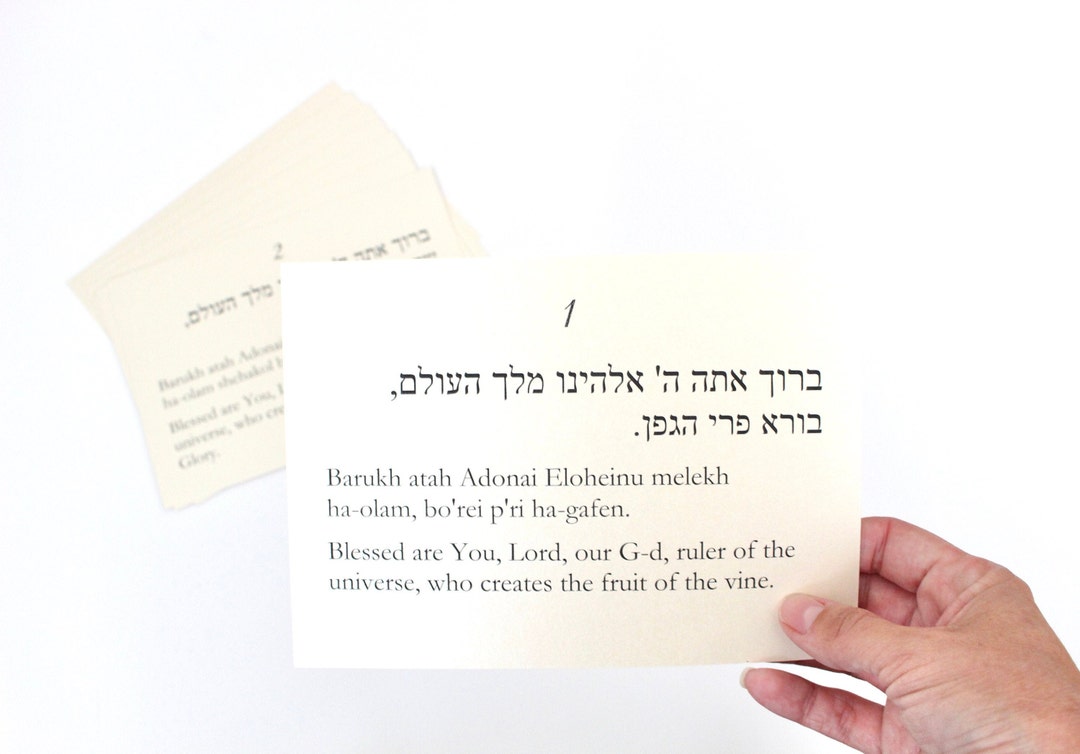 1
ברוך אתה ה' אלהינו מלך העולם,
בורא פרי הגפן.
Barukh atah Adonai Eloheinu melekh
ha-olam, bo'rei p'ri ha-gafen.
Blessed are You, Lord, our G-d, ruler of the
universe, who creates the fruit of the vine.
2
ברוך אתה
מלך העולם,
Barukh atah Adonai
ha-olam shehakol
Blessed are You,
universe, who
Glory.